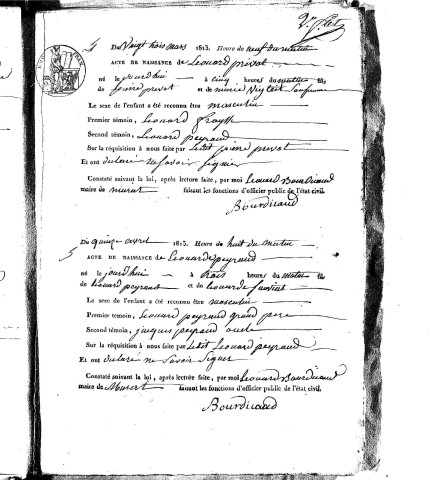 4 Du Vingt trois mars 1813. Heure de neuf du matin
ACTE DE NAISSANCE de Léonard privat
né le jourdhui à cinq heures du matin fils
de pierre privat et de marie
Le sexe de l'enfant a été reconnu être masculin
Premier témoin, Léonard
Second témoin, Léonard peyraud
Sur la réquisition à nous faite par ledit pierre privat
Et ont déclaré ne savoir signer
Constaté suivant la loi, après lecture faite, par moi Léonard Bourdicaud
maire de murat faisant les fonctions d'officier public de l'état civil.
Bourdicaud
5 Du quinze avril 1813. Heure de huit du matin
ACTE DE NAISSANCE de Léonarde peyraud
né le jourdhui à trois heures du matin fils
de Léonard peyraud et de Léonarde
Le sexe de l'enfant a été reconnu être masculin
Premier témoin, Léonard peyraud grand pere
Second témoin, jacques peyraud oncle
Sur la réquisition à nous faite par ledit Léonard peyraud
Et ont déclaré ne savoir signer
Constaté suivant la loi, après lecture faite, par moi Léonard Bourdicaud
maire de Murat faisant les fonctions d'officier public de l'état civil.
Bourdicaud